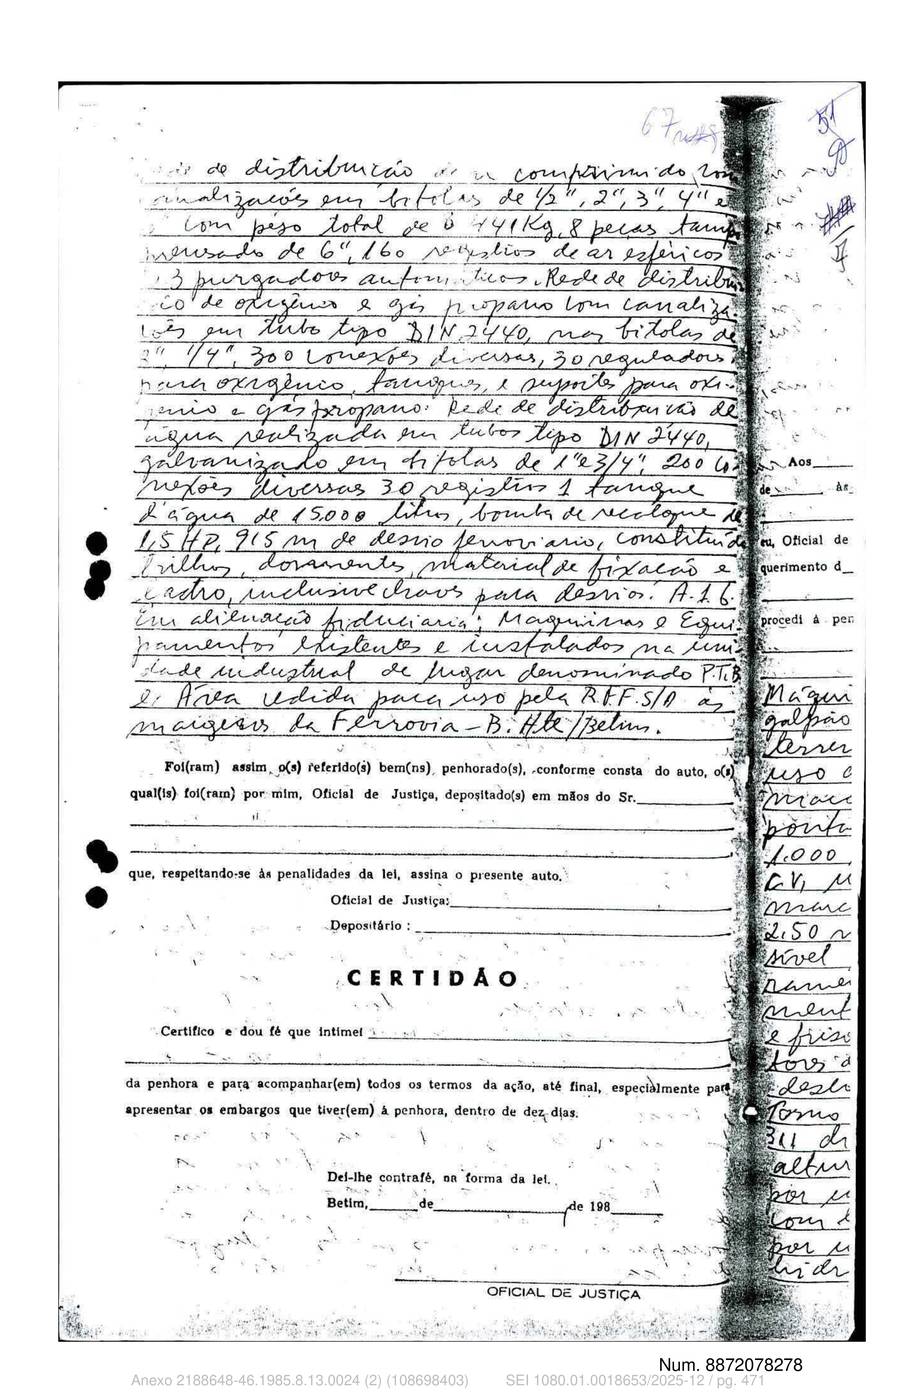 67
51
de distribuição comprimido com
canalizações em bitolas de 1/2", 2", 3", 4" e
com peso total de 441Kg, 8 peças tampo
prensado de 6", 160 registros de ar esféricos
3 purgadores automáticos. Rede de distribui
ção de oxigênio e gás propano com canaliza
ções em tubo tipo DIN 2440, nas bitolas de
2", 1/4", 300 conexões diversas, 30 reguladores
para oxigênio, tanques, e suportes para oxi-
gênio e gás propano. Rede de distribuição de
água realizada em tubos tipo DIN 2440,
galvanizado em bitolas de 1" e 3/4", 200 co
nexões diversas 30 registros 1 tanque
d'água de 15.000 litros, bomba de recalque de
1,5 HP, 915 m de desvio ferroviario, constituido
trilhos, dormentes, material de fixação e
lastro, inclusive chaves para desvios. A.1.6.
Em alienação fiduciaria: Maquinas e Equi
pamentos existentes e instalados na uni
dade industrial de lugar denominado P.T.B
e. Área cedida para uso pela R.F.F.S/A às
margens da Ferrovia - B. Hte/Betim.
Foi(ram) assim, o(s) referido(s) bem(ns), penhorado(s), conforme consta do auto, o(s)
qual(is) foi(ram) por mim, Oficial de Justiça, depositado(s) em mãos do Sr.
que, respeitando-se às penalidades da lei, assina o presente auto.
Oficial de Justiça:
Depositário :
CERTIDÃO
Certifico e dou fé que intimei
da penhora e para acompanhar(em) todos os termos da ação, até final, especialmente para
apresentar os embargos que tiver(em) à penhora, dentro de dez dias.
Dei-lhe contrafé, na forma da lei.
Betim, de de 198
OFICIAL DE JUSTIÇA
Aos
de às
eu, Oficial de
querimento d
procedi à pen
Máqui
galpão
terren
uso
ponta
1.000
C.V,
marc
2.50
sível
ment
e friso
tors
Torno
311 di
altur
por
com
por
hidr
Num. 8872078278
Anexo 2188648-46.1985.8.13.0024 (2) (108698403) SEI 1080.01.0018653/2025-12 / pg. 471